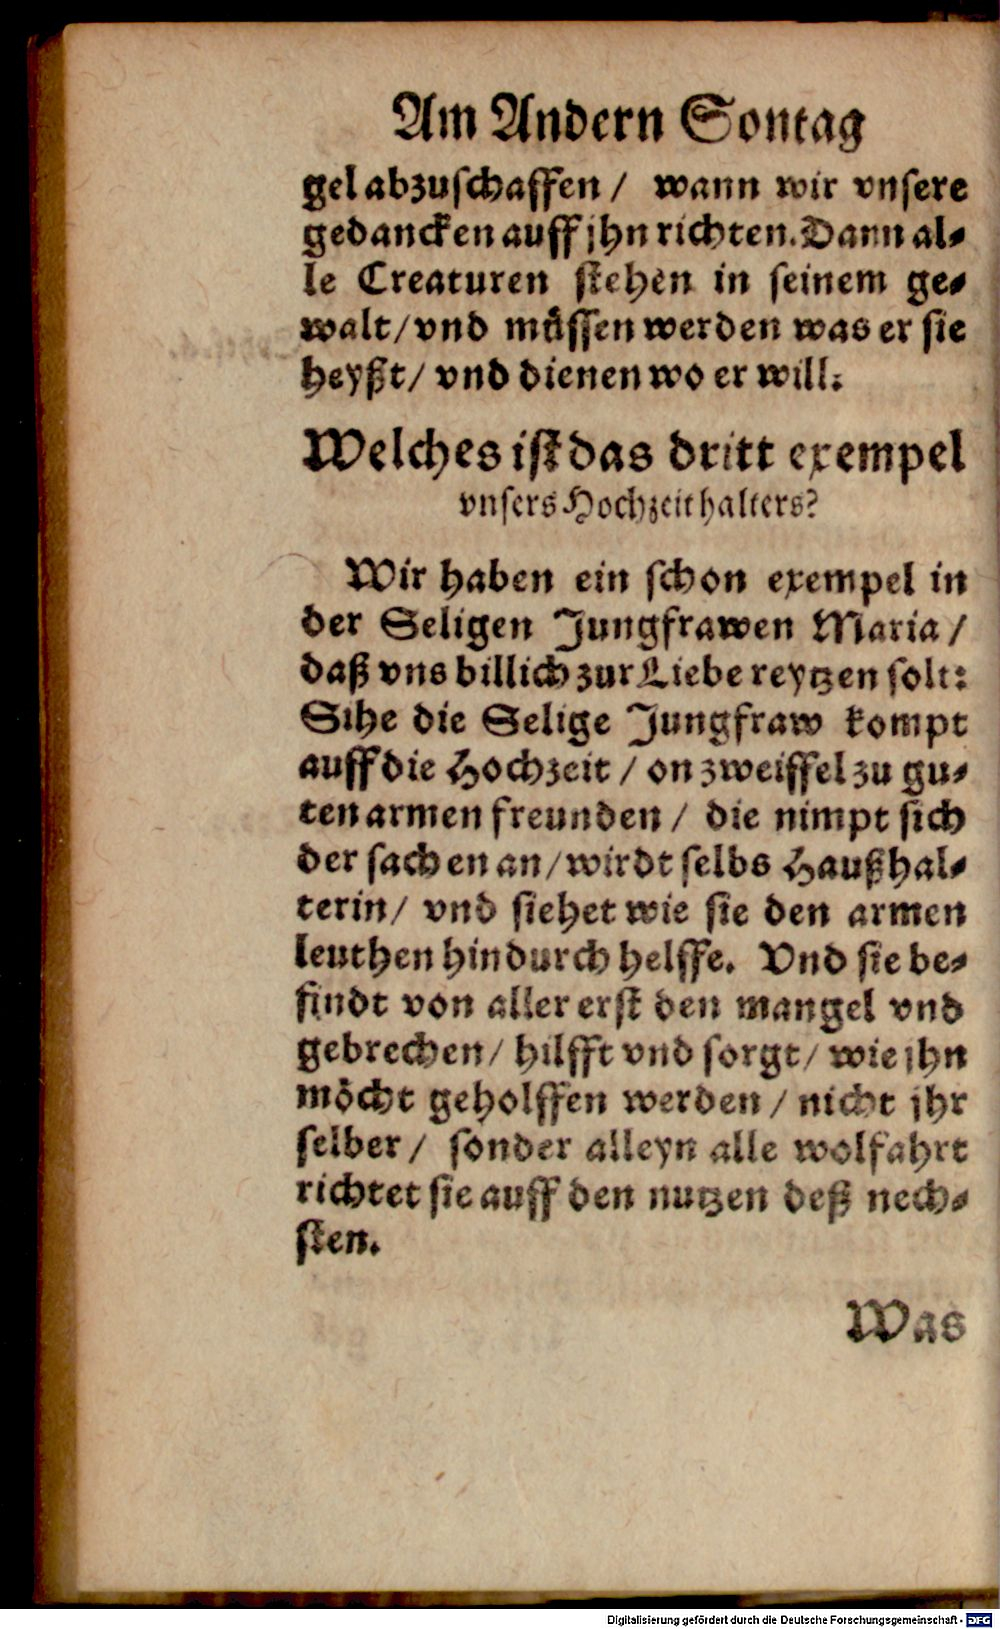 Am Andern Sontag
gel abzuschaffen / wann wir vnsere
gedancken auff jhn richten. Dann al⸗
le Creaturen stehen in seinem ge⸗
walt / vnd müssen werden was er sie
heyßt / vnd dienen wo er will.
Welches ist das dritt exempel
vnsers Hochzeithalters?
Wir haben ein schon exempel in
der Seligen Jungfrawen Maria /
daß vns billich zur Liebe reytzen solt:
Sihe die Selige Jungfraw kompt
auff die Hochzeit / on zweiffel zu gu⸗
ten armen freunden / die nimpt sich
der sachen an / wirdt selbs Haußhal⸗
terin / vnd siehet wie sie den armen
leuthen hindurch helffe. Vnd sie be⸗
findt von aller erst den mangel vnd
gebrechen / hilfft vnd sorgt / wie jhn
möcht geholffen werden / nicht jhr
selber / sonder alleyn alle wolfahrt
richtet sie auff den nutzen deß nech⸗
sten.
Was
Digitalisierung gefördert durch die Deutsche Forschungsgemeinschaft - DFG